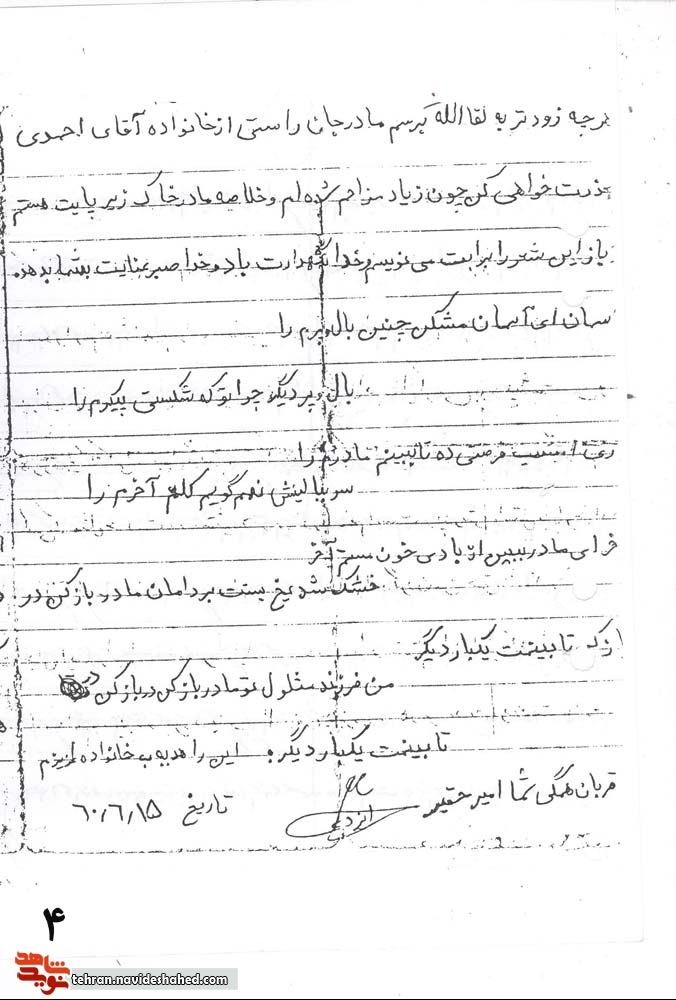 هرچه زودتر به لقا الله برسم مادر جان راستی از خانواده آقای احمدی
عذرت خواهی کن چون زیاد مزاحم شده ام و خلاصه مادر خاک زیر پایت هستم
باز این شعر را برایت می نویسم و خدا نگهدارت باد و خدا صبر عنایت بشما بدهد
آسمان ای آسمان مشکن چنین بال و پرم را
بال و پر دیگر چرا تو که شکستی پیکرم را
امشب فرصتی ده تا ببینم مادرم را
سر ببالینش نهم گویم کلام آخرم را
ای مادر ببین از بادی خون سرم آخر
خشک شد یخ بست بر دامان مادر باز کن در
تا ببینمت یکبار دیگر
من فرزند مشلول تو مادر باز کن در باز کن در
تا ببینمت یکبار دیگر. این را هدیه به خانواده عزیزم
قربان همگی شما امیر حقیر
تاریخ ۶۰/۶/۱۵
۴
نوید شاهد
tehran.navideshahed.com